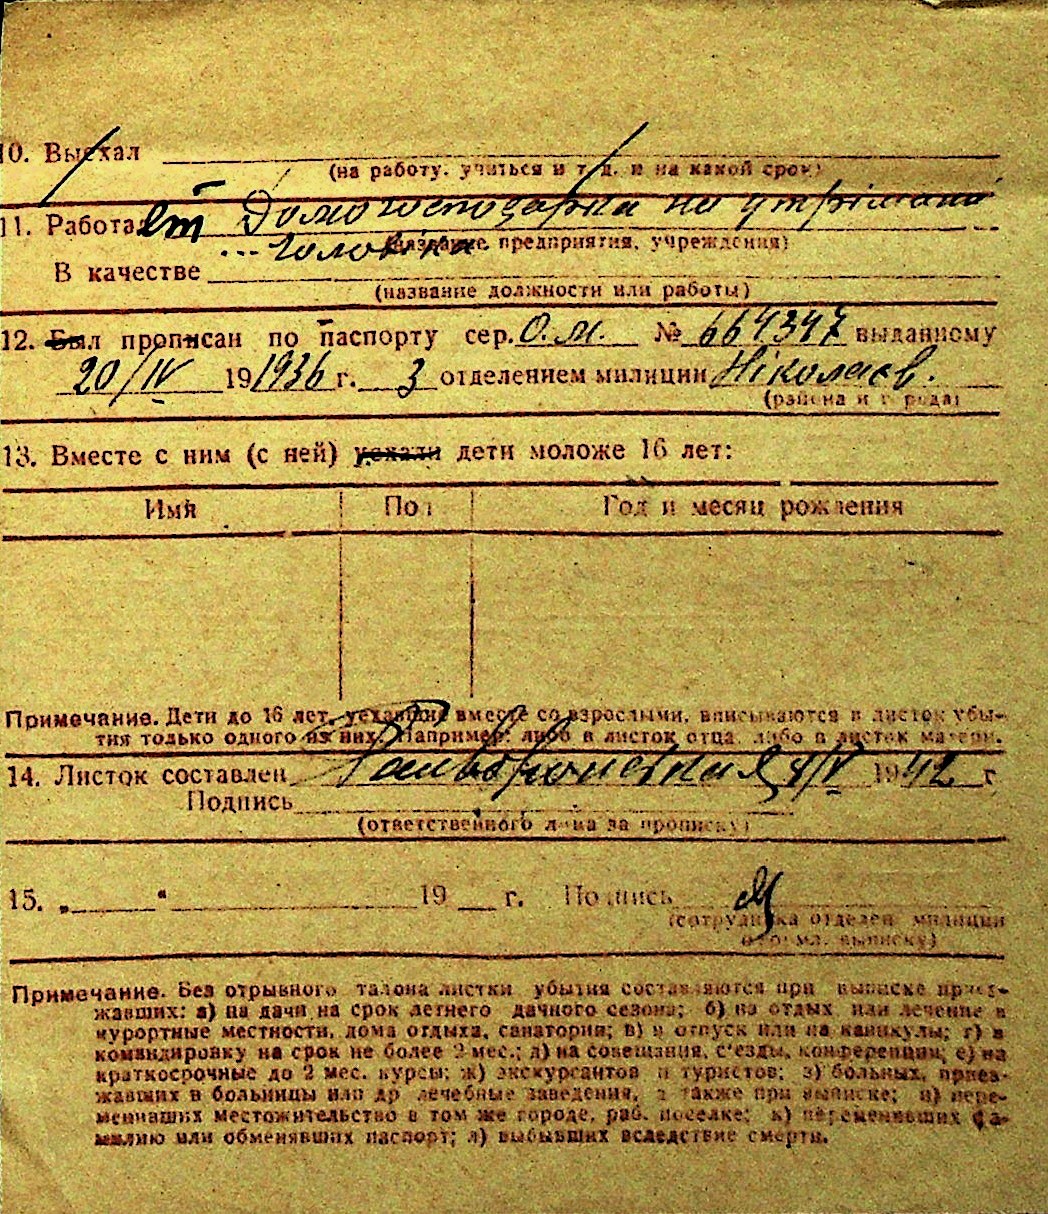 10. Выехал
(на работу, учиться и т. д. и на какой срок)
11. Работает Домогосподарка на утріманні
чоловіка
(название предприятия, учреждения)
В качестве
(название должности или работы)
12. Был прописан по паспорту сер. О.М. № 664347 выданному
20/IV 19 1936 г. 3 отделением милиции Ніколаєв.
(района и города)
13. Вместе с ним (с ней) уехали дети моложе 16 лет:
Имя Пол Год и месяц рождения
Примечание. Дети до 16 лет, уехавшие вместе со взрослыми, вписываются в листок убы-
тия только одного из них. Например: либо в листок отца, либо в листок матери.
14. Листок составлен 1942 г
Подпись
(ответственного лица за прописку)
15. „ “ 19 г. Подпись
(сотрудника отделен. милиции
оформл. выписку)
Примечание. Без отрывного талона листки убытия составляются при выписке приез-
жавших: а) на дачи на срок летнего дачного сезона; б) на отдых или лечение в
курортные местности, дома отдыха, санатории; в) в отпуск или на каникулы; г) в
командировку на срок не более 2 мес.; д) на совещания, с'езды, конференции; е) на
краткосрочные до 2 мес. курсы; ж) экскурсантов и туристов; з) больных, приез-
жавших в больницы или др лечебные заведения, а также при выписке; и) пере-
менивших местожительство в том же городе, раб. поселке; к) переменивших фа-
милию или обменявших паспорт; л) выбывших вследствие смерти.